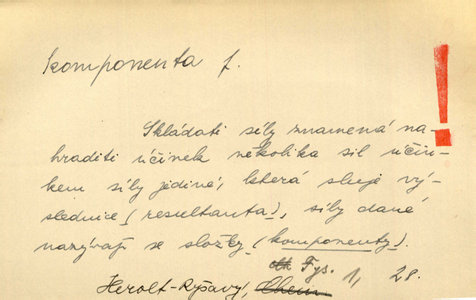 komponenta f.
!
Skládati síly znamená na-
hraditi účinek několika sil účin-
kem síly jediné, která sluje vý-
slednice (resultanta), síly dané
nazývají se složky (komponenty).
Herolt-Ryšavý, Fys. 1, 28.